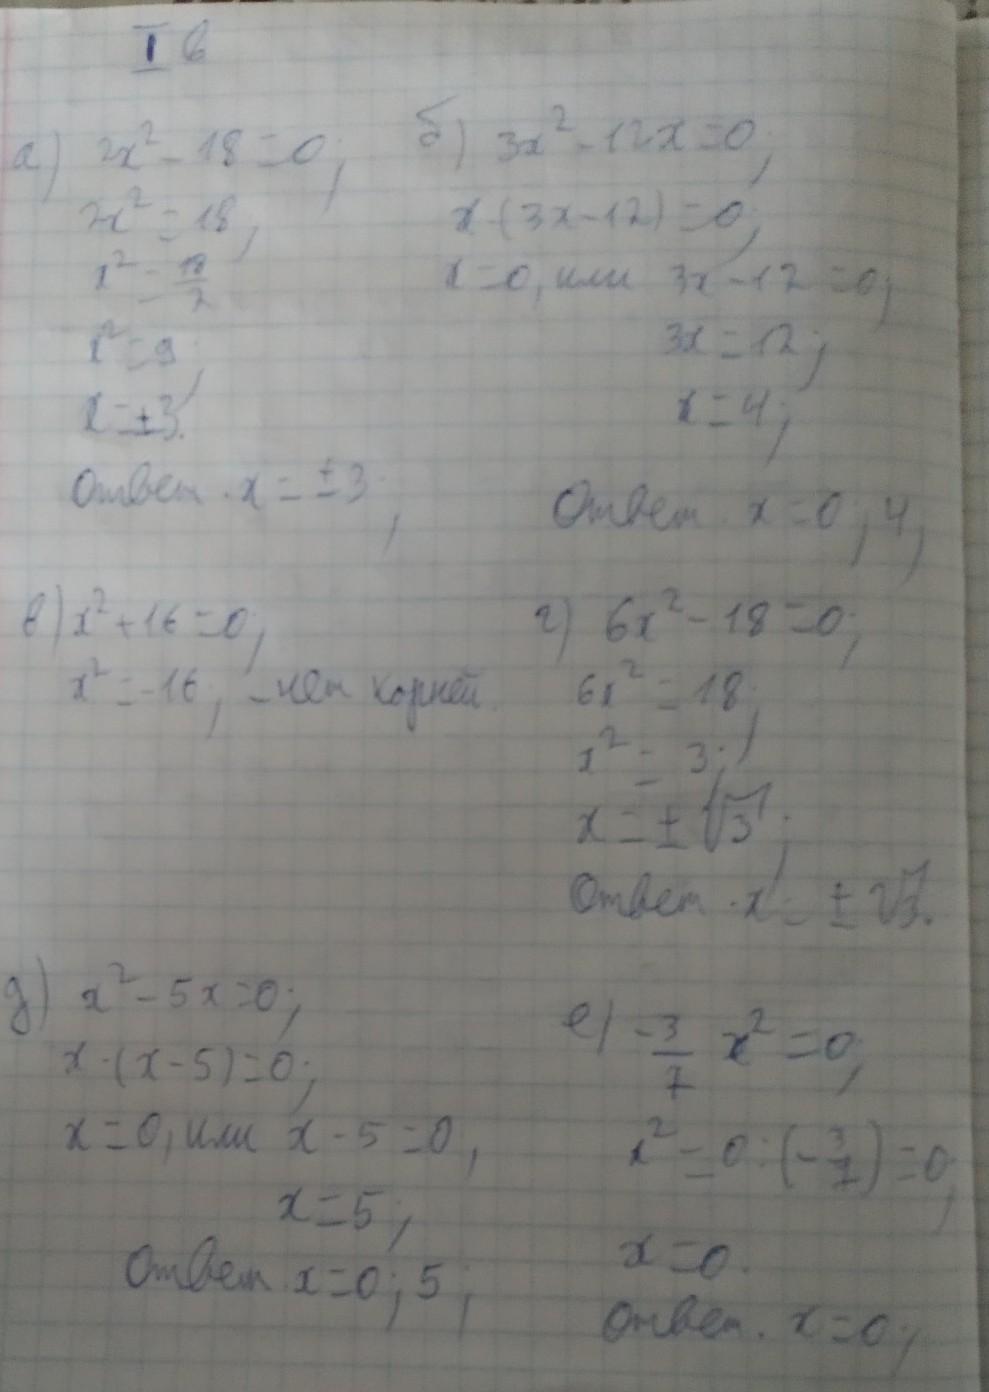 I в
а) 2x² - 18 = 0;
2x² = 18;
x² = 18/2
x² = 9;
x = ±3.
Ответ. x = ±3;
б) 3x² - 12x = 0;
x·(3x-12) = 0;
x = 0, или 3x - 12 = 0;
3x = 12;
x = 4;
Ответ. x = 0; 4;
в) x² + 16 = 0;
x² = -16; - нет корней.
г) 6x² - 18 = 0;
6x² = 18;
x² = 3;
x = ± √3;
Ответ. x = ± √3.
д) x² - 5x = 0;
x·(x-5) = 0;
x = 0, или x - 5 = 0;
x = 5;
Ответ. x = 0; 5;
е) -3/7 x² = 0;
x² = 0 : (-3/7) = 0;
x = 0.
Ответ. x = 0;